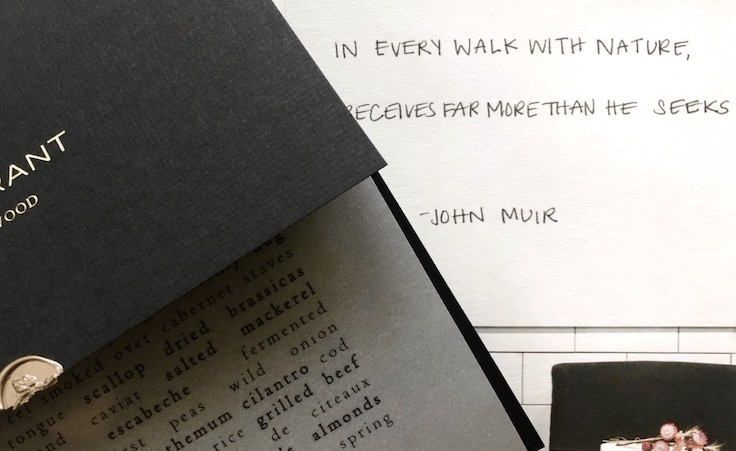 IN EVERY WALK WITH NATURE,
RECEIVES FAR MORE THAN HE SEEKS
-JOHN MUIR
RANT
WOOD
smoked over cabernet staves
tongue scallop dried brassicas
caviar salted mackerel
escabeche fermented
peas wild onion
cilantro cod
rice grilled beef
de citeaux
almonds
spring